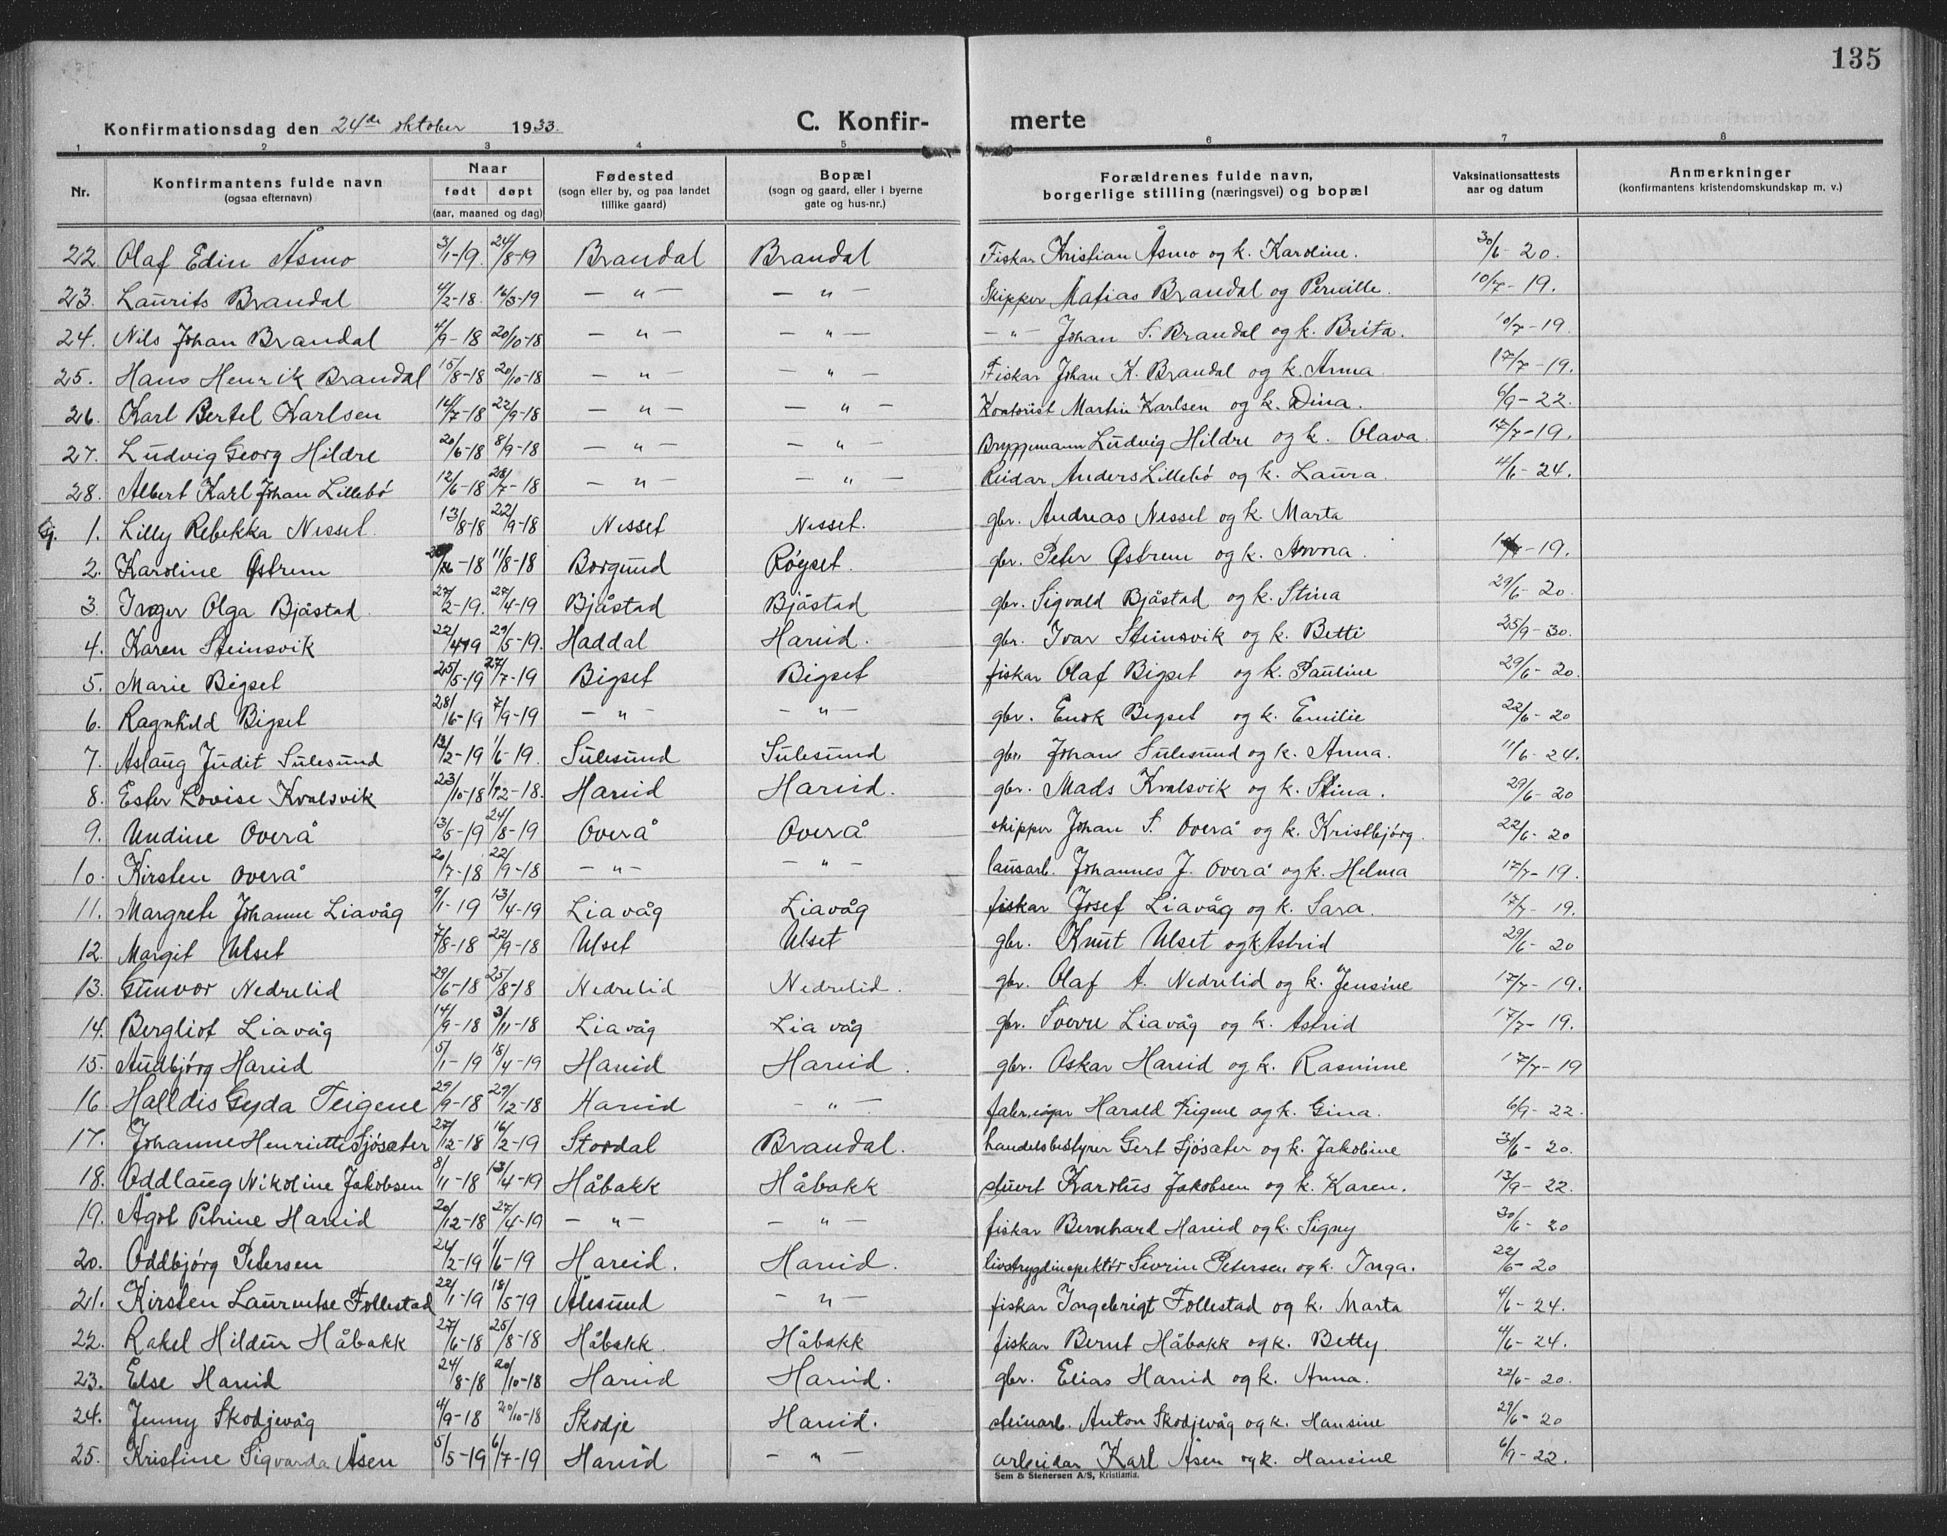 135
Konfirmationsdag den 24de oktober 1933. C. Konfir- merte
1 2 3 4 5 6 7 8
Nr. Konfirmantens fulde navn (ogsaa efternavn) Naar født døpt (aar, maaned og dag) Fødested (sogn eller by, og paa landet tillike gaard) Bopæl (sogn og gaard, eller i byerne gate og hus-nr.) Forældrenes fulde navn, borgerlige stilling (næringsvei) og bopæl Vaksinationsattests aar og datum Anmerkninger (konfirmantens kristendomskundskap m. v.)
22. Olaf Edin Åsmo 3/1-19. 24/8-19 Brandal Brandal Fiskar Kristian Åsmo og k. Karoline. 30/6-20.
23. Laurits Brandal 4/2-18. 16/3-19 — " — — " — Skipper Matias Brandal og Pernille. 10/7-19.
24. Nils Johan Brandal 4/9-18 20/10-18 — " — — " — — " — Johan S. Brandal og k. Brita. 10/7-19.
25. Hans Henrik Brandal 15/8-18 20/10-18 — " — — " — Fiskar Johan K. Brandal og k. Anna 17/7-19.
26. Karl Bertel Karlsen 14/7-18 22/9-18 — " — — " — Kontorist Martin Karlsen og k. Dina. 6/9-22.
27. Ludvig Georg Hildre 20/6-18 8/9-18 — " — — " — Bryggemann Ludvig Hildre og k. Olava. 17/7-19.
28. Albert Karl Johan Lillebø 12/6-18 28/7-18 — " — — " — Reidar Anders Lillebø og k. Laura. 4/6-24.
Gj. 1. Lilly Rebekka Nesset. 13/8-18 22/9-18 Nesset Nesset. gbr. Andreas Nesset og k. Marta
2. Karoline Østrem -18 11/8-18 Borgund Røyset. gbr. Peter Østrem og k. Anna. -19.
3. Inger Olga Bjåstad. 27/2-19. 27/4-19 Bjåstad Bjåstad gbr. Sigvald Bjåstad og k. Stina 29/6-20.
4. Karen Steinsvik 22/4-19 29/5-19. Haddal Hareid. gbr. Ivar Steinsvik og k. Betti 25/9-30.
5. Marie Bigset 25/5-19 27/7-19 Bigset Bigset fiskar Olaf Bigset og k. Pauline 29/6-20.
6. Ragnhild Bigset 28/6-19 7/9-19 — " — — " — gbr. Enok Bigset og k. Emilie 22/6-20
7. Aslaug Judit Sulesund 12/2-19 1/6-19. Sulesund Sulesund gbr. Johan Sulesund og k. Anna. 11/6-24.
8. Ester Lovise Kvalsvik 23/10-18 1/12-18. Hareid Hareid. gbr. Mads Kvalsvik og k. Stina. 29/6-20
9. Undine Overå 13/5-19 24/8-19 Overå Overå skipper Johan S. Overå og k. Kristbjørg. 22/6-20
10. Kirsten Overå 20/7-18 22/9-18 — " — — " — lausarb. Johannes J. Overå og k. Helma 17/7-19.
11. Margrete Johanne Liavåg 9/1-19 13/4-19 Liavåg Liavåg fiskar Josef Liavåg og k. Sara. 17/7-19.
12. Margit Ulset 7/8-18 22/9-18 Ulset Ulset gbr. Knut Ulset og k Astrid 29/6-20
13. Gunvor Nedrelid 29/6-18 25/8-18 Nedrelid Nedrelid. gbr. Olaf A. Nedrelid og k. Jensine 17/7-19.
14. Bergliot Liavåg 14/9-18 3/11-18 Liavåg Liavåg gbr. Sverre Liavåg og k. Astrid 17/7-19.
15. Audbjørg Hareid 5/1-19 18/4-19 Hareid Hareid. gbr. Oskar Hareid og k. Rasmine 17/7-19
16 Halldis Gyda Teigene 29/9-18 29/12-18 Hareid — " — Harald Teigene og k. Gina. 6/9-22.
17. Johanne Henriette Sjösæter 27/12-18 16/2-19 Stordal Brandal. handelsbestyrer Gert Sjösæter og k. Jakobine 30/6-20.
18. Oddlaug Nikoline Jakobsen 8/11-18 13/4-19 Håbakk Håbakk stuert Karolus Jakobsen og k. Karen. 13/9-22.
19. Ågot Petrine Hareid 20/12-18 27/4-19 — " — — " — fiskar Bernhard Hareid og k. Signy 30/6-20
20. Oddbjørg Petersen 24/2-19 1/6-19 Hareid. Hareid. livstrygdinspektør Severin Petersen og k. Inga. 22/6-20
21. Kirsten Laurentse Follestad 22/1-19 18/5-19 Ålesund — " — fiskar Ingebrigt Follestad og k. Marta 4/6-24.
22. Rakel Hildur Håbakk 27/6-18 25/8-18 Håbakk. Håbakk fiskar Bernt Håbakk og k. Betty. 4/6-24.
23. Else Hareid 24/8-18 20/10-18 Hareid Hareid. gbr. Elias Hareid og k. Anna. 22/6-20.
24. Jenny Skodjevåg 4/9-18 20/10-18 Skodje Hareid. steinarb. Anton Skodjevåg og k. Hansine 29/6-20
25. Kristine Sigvarda Åsen 5/5-19 6/7-19 Hareid — " — arbeidar Karl Åsen og k. Hansine 6/9-22.
Sem & Stenersen A/S, Kristiania.